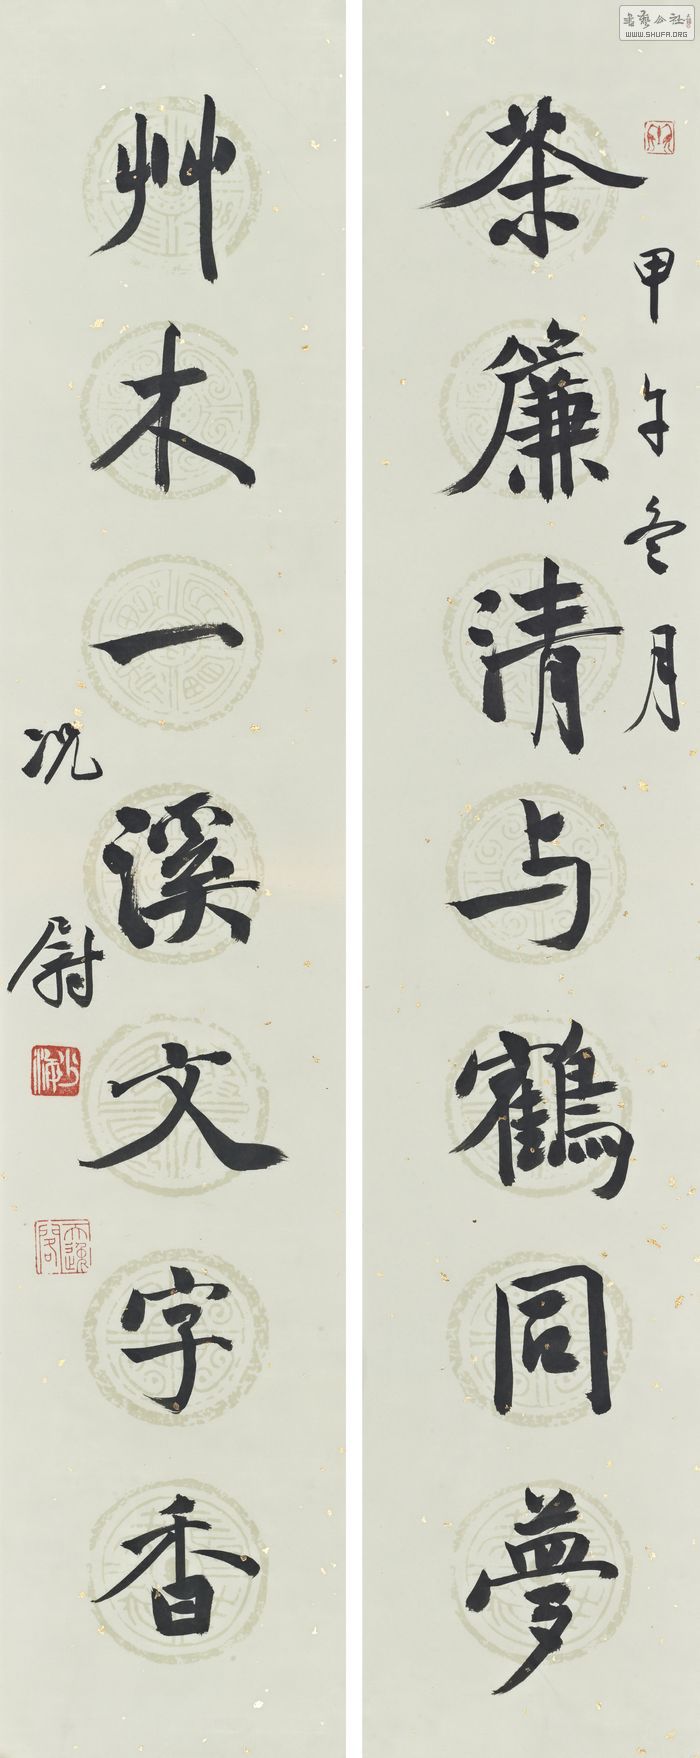 甲午冬月
茶簾清与鶴同夢
艸木一溪文字香
况尉
书艺公社
WWW.SHUFA.ORG